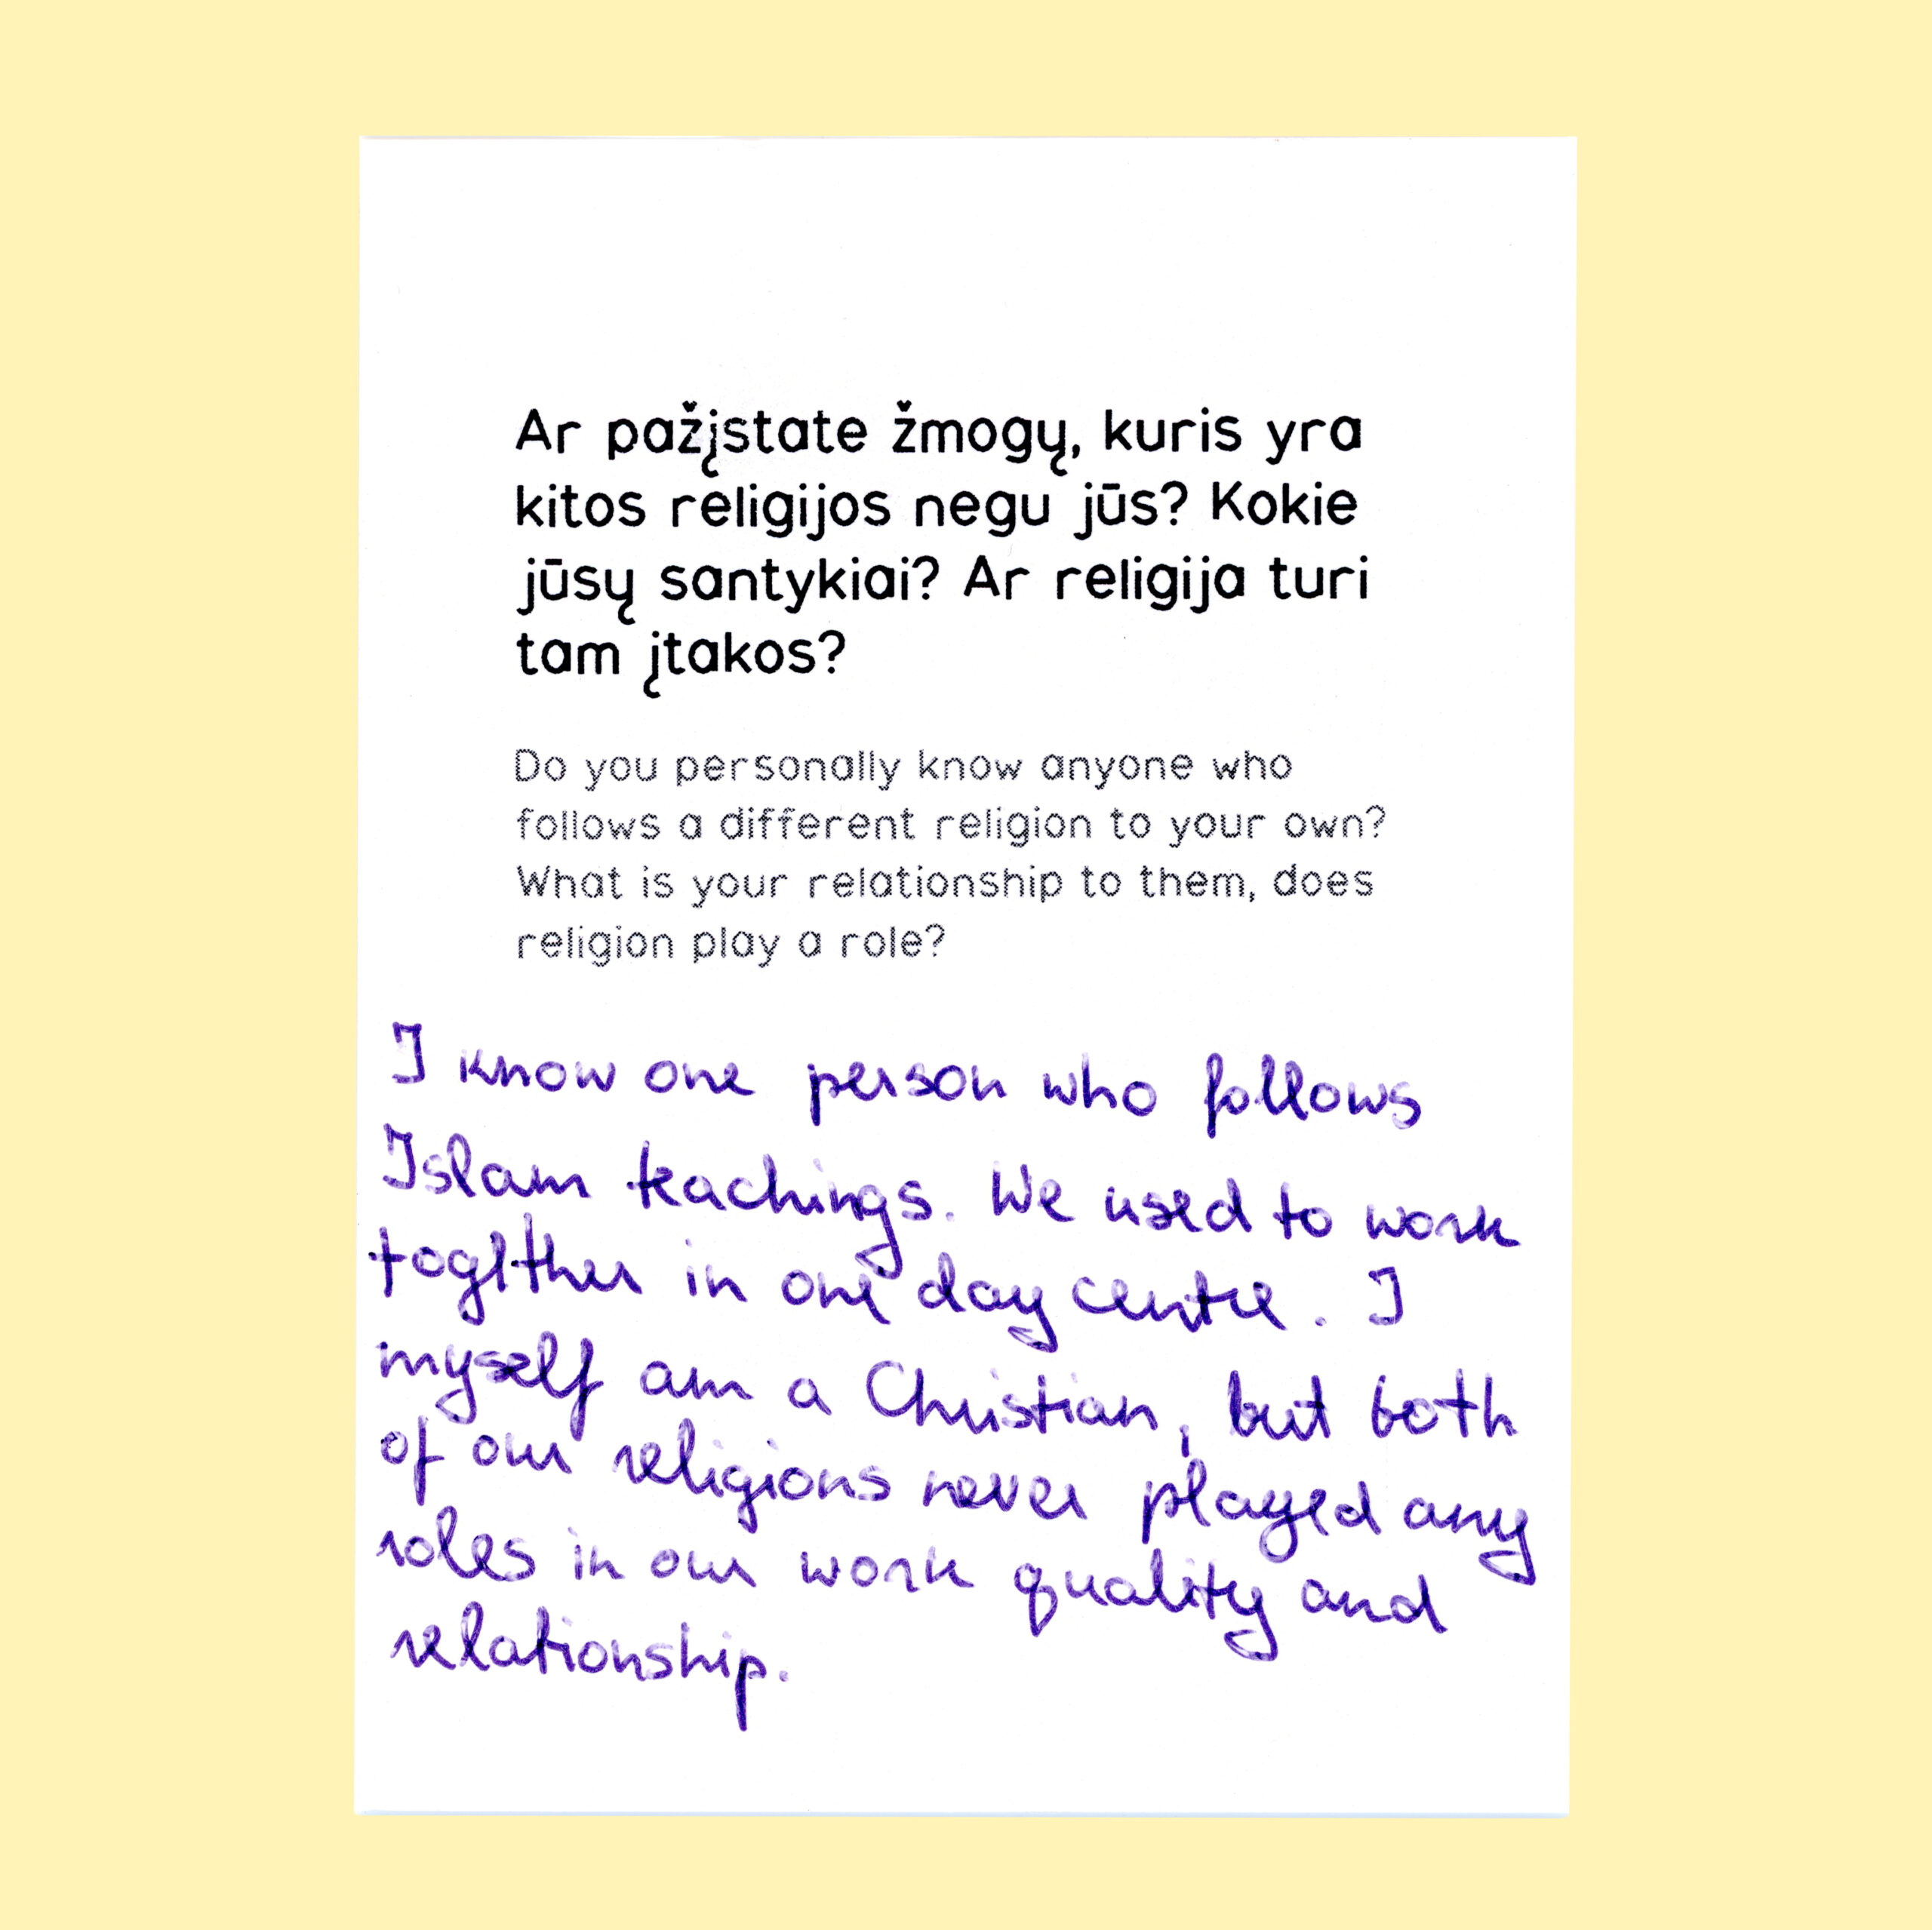 Ar pažįstate žmogų, kuris yra
kitos religijos negu jūs? Kokie
jūsų santykiai? Ar religija turi
tam įtakos?
Do you personally know anyone who
follows a different religion to your own?
What is your relationship to them, does
religion play a role?
I know one person who follows
Islam teachings. We used to work
together in one day centre. I
myself am a Christian, but both
of our religions never played any
roles in our work quality and
relationship.